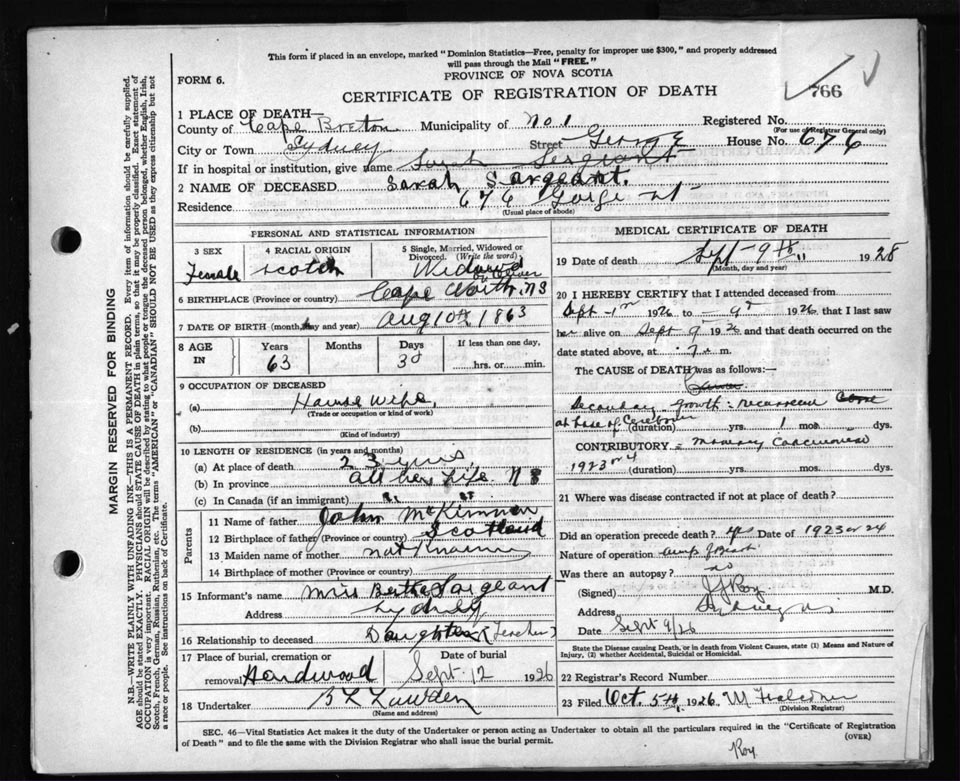 This form if placed in an envelope, marked "Dominion Statistics—Free, penalty for improper use $300," and properly addressed
will pass through the Mail "FREE."
FORM 6.
PROVINCE OF NOVA SCOTIA
CERTIFICATE OF REGISTRATION OF DEATH
766
1 PLACE OF DEATH—
County of Cape Breton Municipality of No. 1 Registered No.
(For use of Registrar General only)
City or Town Sydney Street George House No. 676
If in hospital or institution, give name Sarah Sergeant
2 NAME OF DECEASED Sarah Sargeant.
Residence 676 Gorge St
(Usual place of abode)
PERSONAL AND STATISTICAL INFORMATION
3 SEX
Female
4 RACIAL ORIGIN
Scotch
5 Single, Married, Widowed or
Divorced. (Write the word)
Widowed
6 BIRTHPLACE (Province or country) Cape North, N S
7 DATE OF BIRTH (month, day and year) Aug 10th 1863
8 AGE IN
Years 63
Months
Days 30
If less than one day,
hrs. or min.
9 OCCUPATION OF DECEASED
(a) House Wife,
(Trade or occupation or kind of work)
(b)
(Kind of industry)
10 LENGTH OF RESIDENCE (in years and months)
(a) At place of death 23 yrs
(b) In province all her Life N S
(c) In Canada (if an immigrant)
Parents
11 Name of father John McKinnon
12 Birthplace of father (Province or country) Scotland
13 Maiden name of mother not known
14 Birthplace of mother (Province or country)
15 Informant's name Miss Bertha Sargeant
Address Sydney
16 Relationship to deceased Daughter (Teacher)
17 Place of burial, cremation or
removal Hardwood
Date of burial
Sept. 12 1926
18 Undertaker
(Name and address)
MEDICAL CERTIFICATE OF DEATH
19 Date of death Sept - 9th 1926
(Month, day and year)
20 I HEREBY CERTIFY that I attended deceased from
Sept - 1st 1926 to 9th 1926 that I last saw
her alive on Sept 9 1926 and that death occurred on
date stated above, at 7 m.
The CAUSE of DEATH was as follows:—
Secondary growth: recurrence
at base of Cerebrum (duration) yrs. 1 mos. dys.
CONTRIBUTORY
1923 or 4 (duration) yrs. mos. dys.
21 Where was disease contracted if not at place of death?
Did an operation precede death? yes Date of 1923 or 24
Nature of operation
Was there an autopsy? no
(Signed) J J Roy M.D.
Address Sydney NS
Date Sept 9/26
State the Disease causing Death, or in death from Violent Causes, state (1) Means and Nature of
Injury, (2) whether Accidental, Suicidal or Homicidal.
22 Registrar's Record Number
23 Filed Oct. 5th, 1926
(Division Registrar)
SEC. 46—Vital Statistics Act makes it the duty of the Undertaker or person acting as Undertaker to obtain all the particulars required in the "Certificate of Registration
of Death" and to file the same with the Division Registrar who shall issue the burial permit.
(OVER)
Roy
MARGIN RESERVED FOR BINDING
N.B.—WRITE PLAINLY WITH UNFADING INK—THIS IS A PERMANENT RECORD. Every item of information should be carefully supplied.
AGE should be stated EXACTLY. PHYSICIANS should STATE CAUSE OF DEATH in plain terms, so that it may be properly classified. Exact statement of
OCCUPATION is very important. RACIAL ORIGIN will be described by stating to what people or tongue the deceased person belonged, whether English, Irish,
Scotch, French, German, Russian, Ruthenian, etc. The terms "AMERICAN" or "CANADIAN" SHOULD NOT BE USED as they express citizenship but not
a race or people. See instructions on back of Certificate.